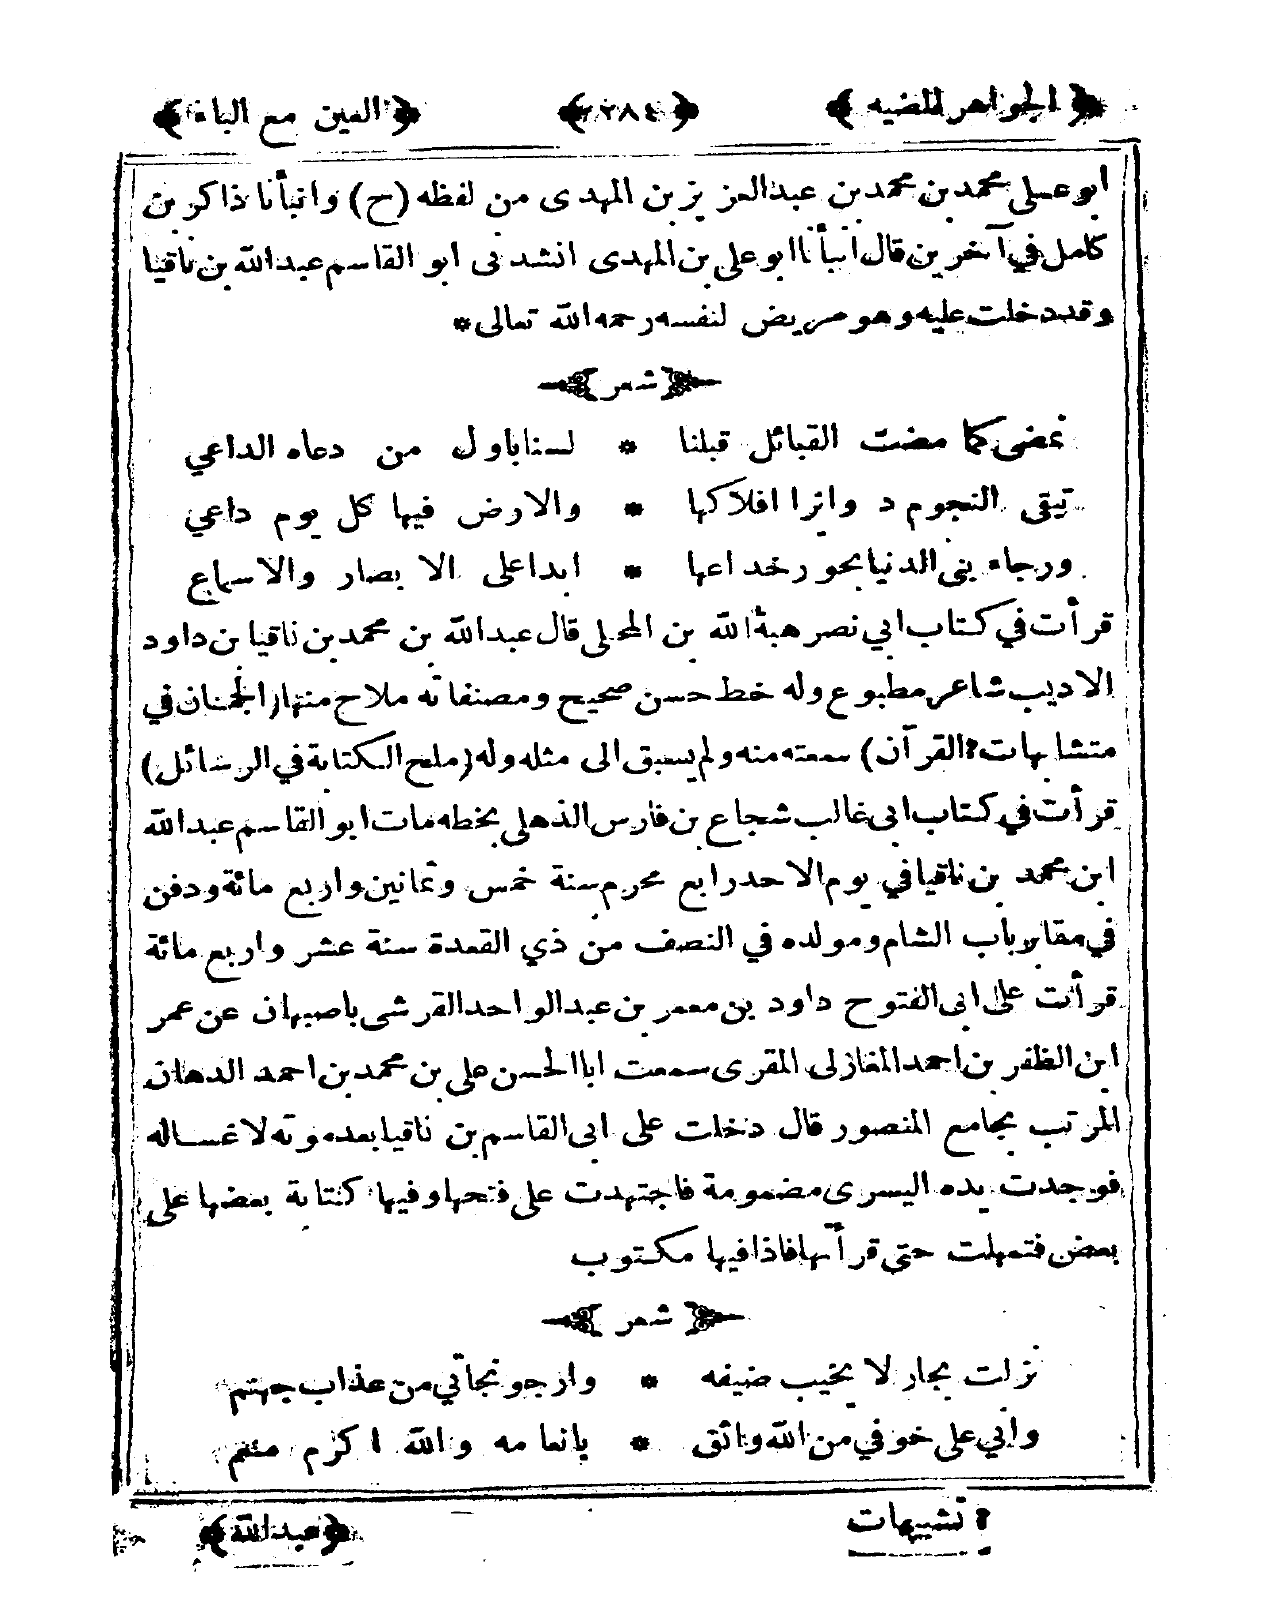 ﴿الجواهر المضيه﴾ ﴿٢٨٤﴾ ﴿العين مع الباء﴾
ابو على محمد بن محمد بن عبد العزيز بن المهدى من لفظه (ح) وانبأنا ذاكر بن
كامل في آخرين قال انبأنا ابو على بن المهدى انشدنى ابو القاسم عبد الله بن ناقيا
وقد دخلت عليه وهو مريض لنفسه رحمه الله تعالى *
﴿شعر﴾
نمضى كما مضت القبائل قبلنا * لسنا باول من دعاه الداعي
تبقى النجوم دوائرا افلاكها * والارض فيها كل يوم داعي
ورجاء بنى الدنيا بحور خداعها * ابدا على الابصار والاسماع
قرأت في كتاب ابي نصر هبة الله بن المحلى قال عبد الله بن محمد بن ناقيا بن داود
الاديب شاعر مطبوع وله خط حسن صحيح ومصنفاته ملاح منها (الجمان في
متشابهات؟ القرآن) سمعته منه ولم يسبق الى مثله وله (ملح الكتابة في الرسائل)
قرأت في كتاب ابى غالب شجاع بن فارس الذهلى بخطه مات ابو القاسم عبد الله
ابن محمد بن ناقيا في يوم الاحد رابع محرم سنة خمس وثمانين واربع مائة ودفن
في مقابر باب الشام ومولده في النصف من ذي القعدة سنة عشر واربع مائة
قرأت على ابى الفتوح داود بن معمر بن عبد الواحد القرشى باصبهان عن عمر
ابن الظفر بن احمد المغازلى المقرى سمعت ابا الحسن على بن محمد بن احمد الدهان
المرتب بجامع المنصور قال دخلت على ابى القاسم بن ناقيا بعد موته لاغساله
فوجدت يده اليسرى مضمومة فاجتهدت على فتحها وفيها كتابة بعضها على
بعض فتمهلت حتى قرأتها فاذا فيها مكتوب
﴿شعر﴾
نزلت بجار لا يخيب ضيفه * وارجو نجاتي من عذاب جهنم
واني على خوفي من الله واثق * بانعامه والله اكرم منعم
؟ تشبيهات
﴿عبد الله﴾